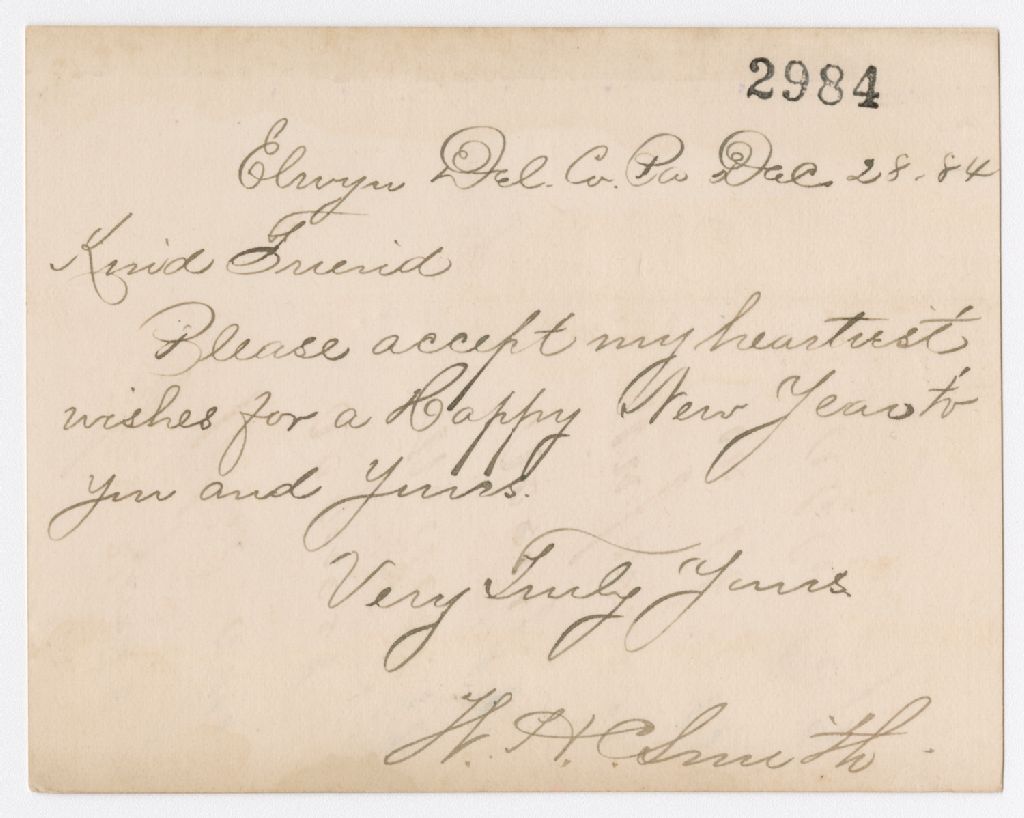 2984
Elwyn Del. Co. Pa Dec 28. 84
Kind Friend
Please accept my heartiest
wishes for a Happy New Year to
you and Yours.
Very Truly Yours
W. H. C. Smith.